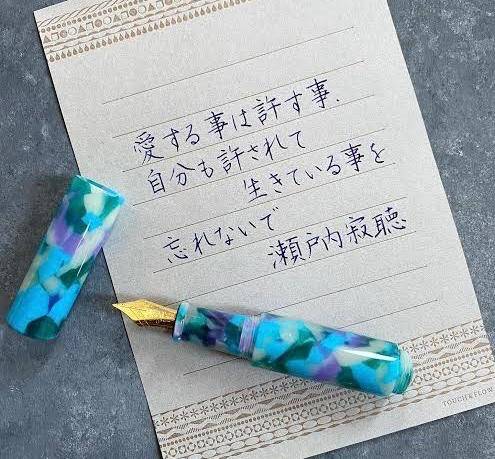 愛する事は許す事.
自分も許されて
生きている事を
忘れないで
瀬戸内寂聴
TOUCH & FLOW